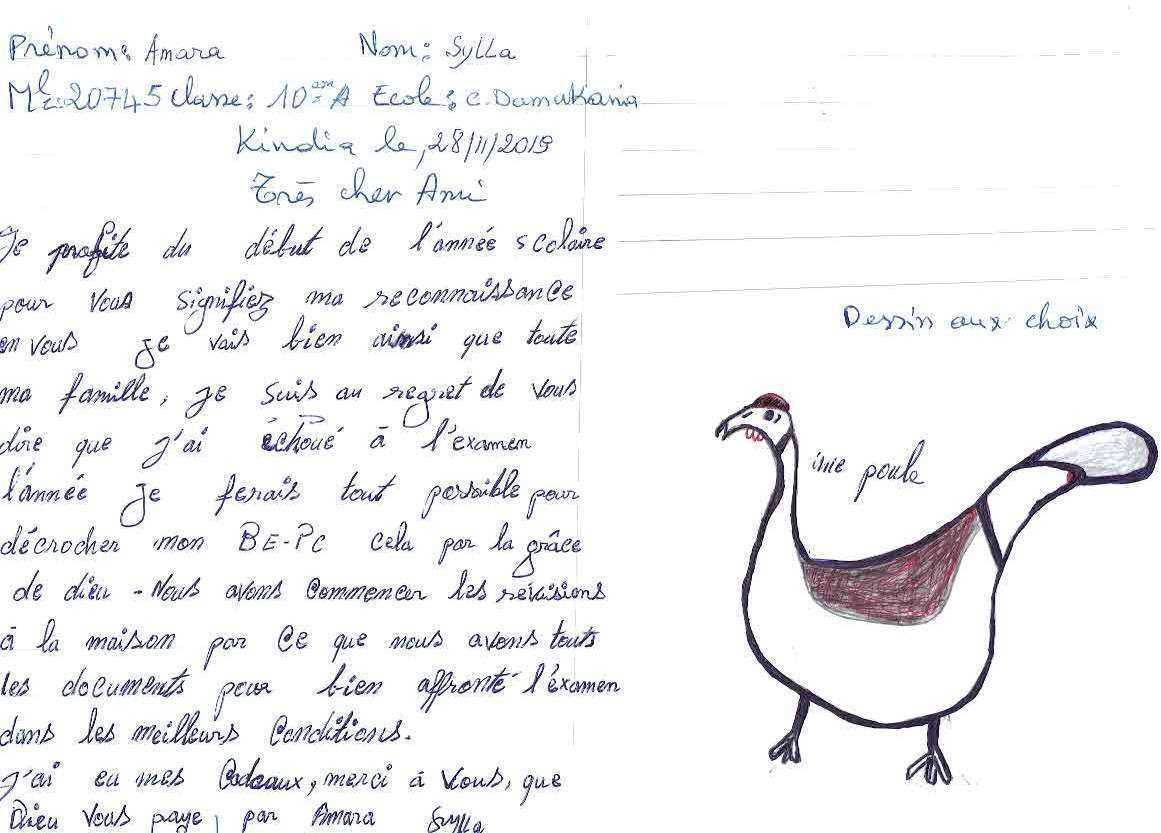 Prénom: Amara Nom: Sylla
Mle: 20745 Classe: 10ème A Ecole: C. Damakania
Kindia le, 28/11/2019
Très cher Ami
Je profite du début de l'année scolaire
pour vous signifiez ma reconnaissance
en vous je vais bien ainsi que toute
ma famille, je suis au regret de vous
dire que j'ai échoué à l'examen
l'année je ferais tout possible pour
décrocher mon BE-PC cela par la grâce
de dieu - Nous avons commencer les révisions
à la maison par ce que nous avons touts
les documents pour bien affronté l'examen
dans les meilleurs conditions.
J'ai eu mes Cadeaux, merci à vous, que
Dieu vous paye, par Amara Sylla
Dessin aux choix
une poule